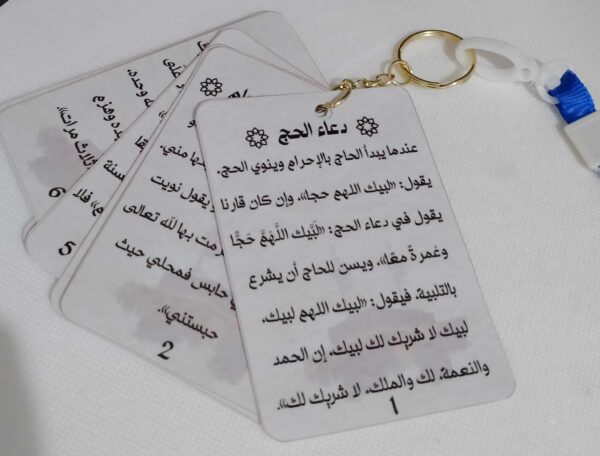 دعاء الحج
عندما يبدأ الحاج بالإحرام وينوي الحج،
يقول: «لبيك اللهم حجا». وإن كان قارنا
يقول في دعاء الحج: «لَبَّيك اللَّهُمَّ حَجًّا
وعُمرةً معًا». ويسن للحاج أن يشرع
بالتلبية. فيقول: «لبيك اللهم لبيك،
لبيك لا شريك لك لبيك، إن الحمد
والنعمة، لك والملك، لا شريك لك».
1
منى.
ويقول نويت
بها لله تعالى
حابس فمحلي حيث
حبستني».
2
5
وحده،
وهزم
ثلاث مرات».
6